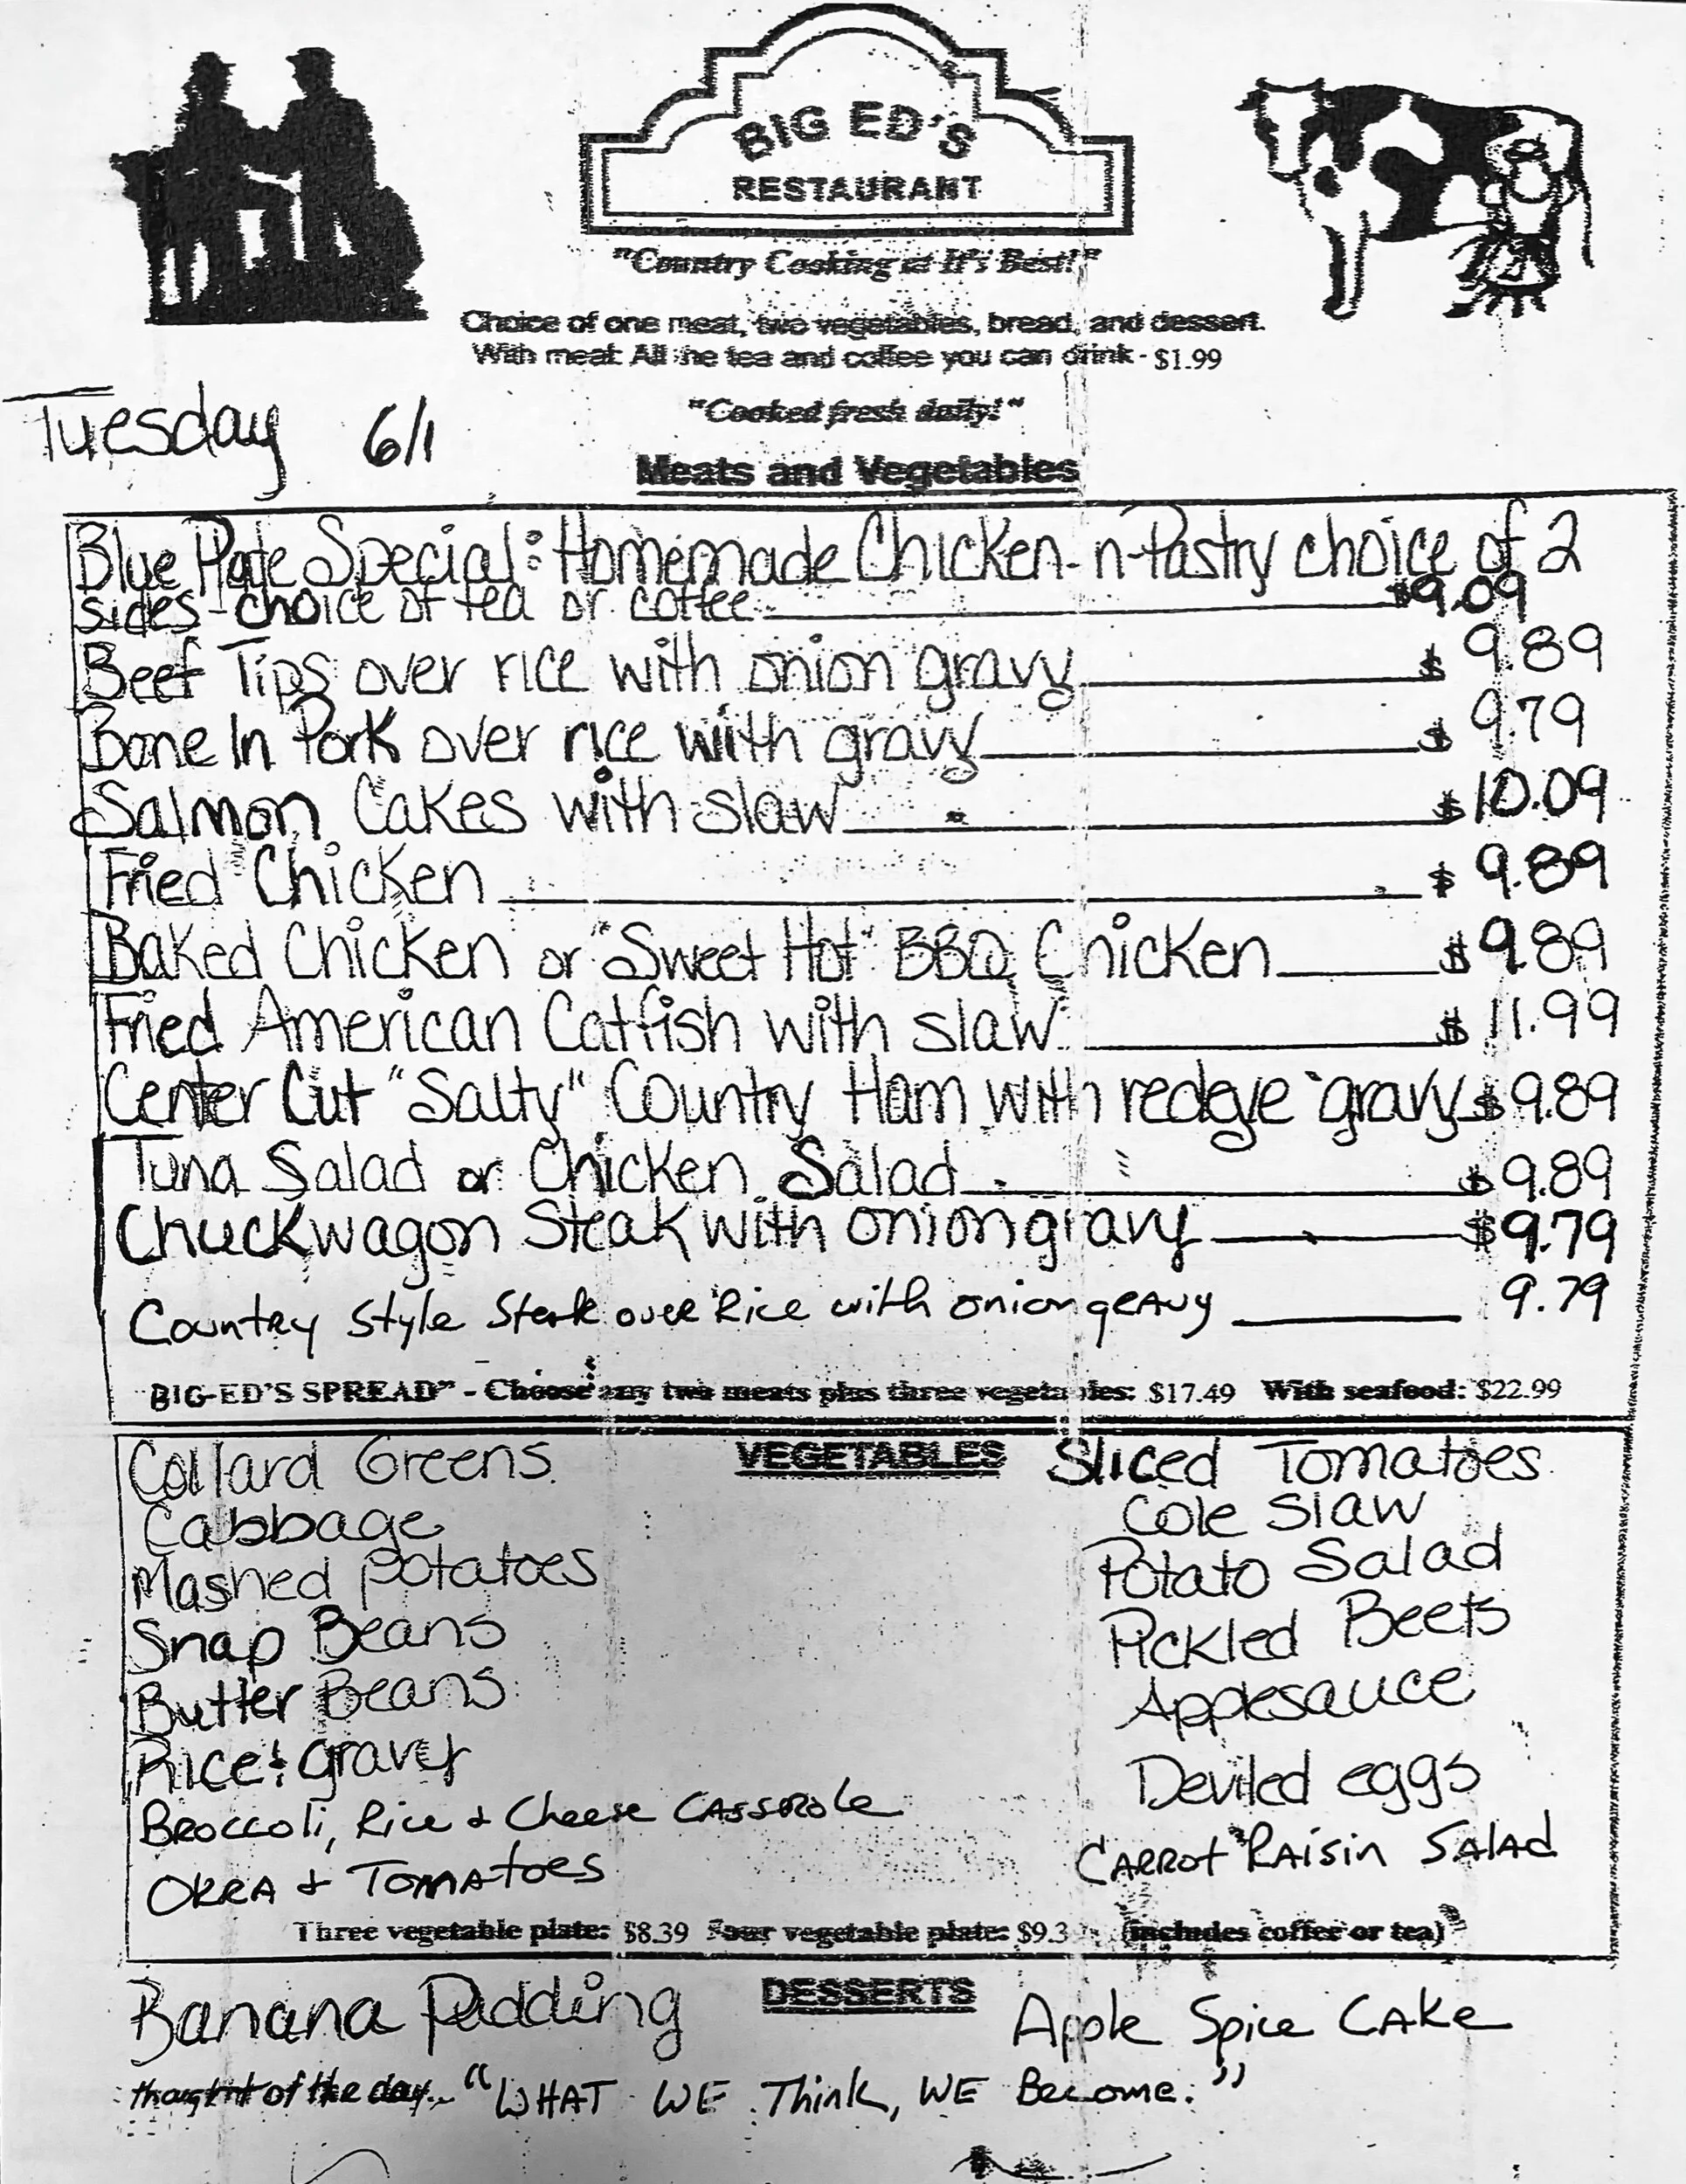 BIG ED'S
RESTAURANT
"Country Cooking at It's Best!"
Choice of one meat, two vegetables, bread, and dessert.
With meat: All the tea and coffee you can drink - $1.99
Tuesday 6/1
"Cooked fresh daily!"
Meats and Vegetables
Blue Plate Special: Homemade Chicken-n-Pastry choice of 2
sides - choice of tea or coffee $9.09
Beef Tips over rice with onion gravy $9.89
Bone In Pork over rice with gravy $9.79
Salmon Cakes with slaw $10.09
Fried Chicken $9.89
Baked Chicken or "Sweet Hot" BBQ Chicken $9.89
Fried American Catfish with slaw $11.99
Center Cut "Salty" Country Ham with redeye gravy $9.89
Tuna Salad or Chicken Salad $9.89
Chuckwagon Steak with onion gravy $9.79
Country Style Steak over Rice with onion gravy 9.79
BIG-ED'S SPREAD" - Choose any two meats plus three vegetables: $17.49 With seafood: $22.99
VEGETABLES
Collard Greens
Cabbage
Mashed potatoes
Snap Beans
Butter Beans
Rice & gravy
Broccoli, Rice & Cheese Casserole
Okra & Tomatoes
Sliced Tomatoes
Cole Slaw
Potato Salad
Pickled Beets
Applesauce
Deviled eggs
Carrot Raisin Salad
Three vegetable plate: $8.39 Four vegetable plate: $9.3 (includes coffee or tea)
DESSERTS
Banana Pudding
Apple Spice Cake
thought of the day... "WHAT WE Think, WE Become."